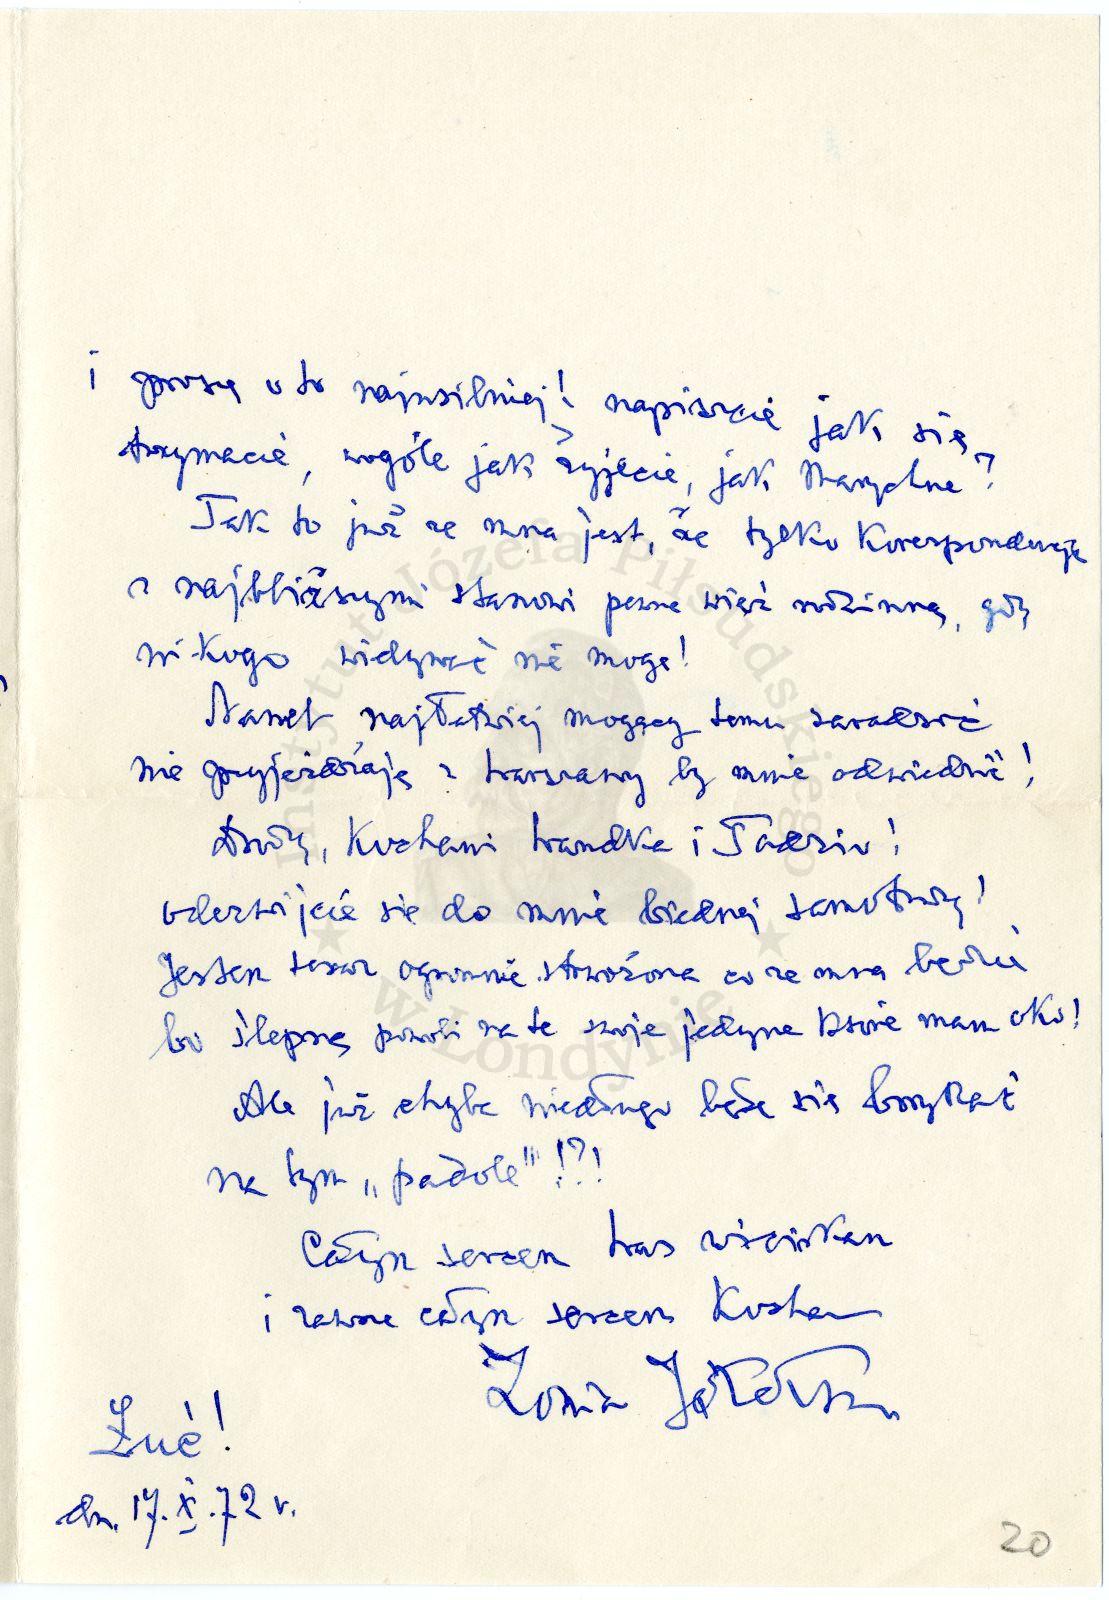 i proszę o to najusilniej! napiszcie jak się
trzymacie, wogóle jak żyjecie, jak Marylne?
Tak to już ze mną jest, że tylko korespondencja
z najbliższymi stanowi pewną więź rodzinną, gdyż
nikogo widywać nie mogę!
Nawet najłatwiej mogący temu zaradzić
nie przyjeżdżają z Warszawy by mnie odwiedzić!
Drodzy, Kochani Wandka i Tadziu!
oderwijcie się do mnie biednej samotnicy!
Jestem teraz ogromnie strwożona co ze mną będzie
bo ślepnę powoli na te swoje jedyne które mam oko!
Ale już chyba niedługo będę się borykać
na tym „padole" !?!
Całym sercem Was wściskam
i zawsze całym sercem Kocham
Zonia
Łuć!
dn. 17.X.72 r.
20
Instytut Józefa Piłsudskiego
w Londynie